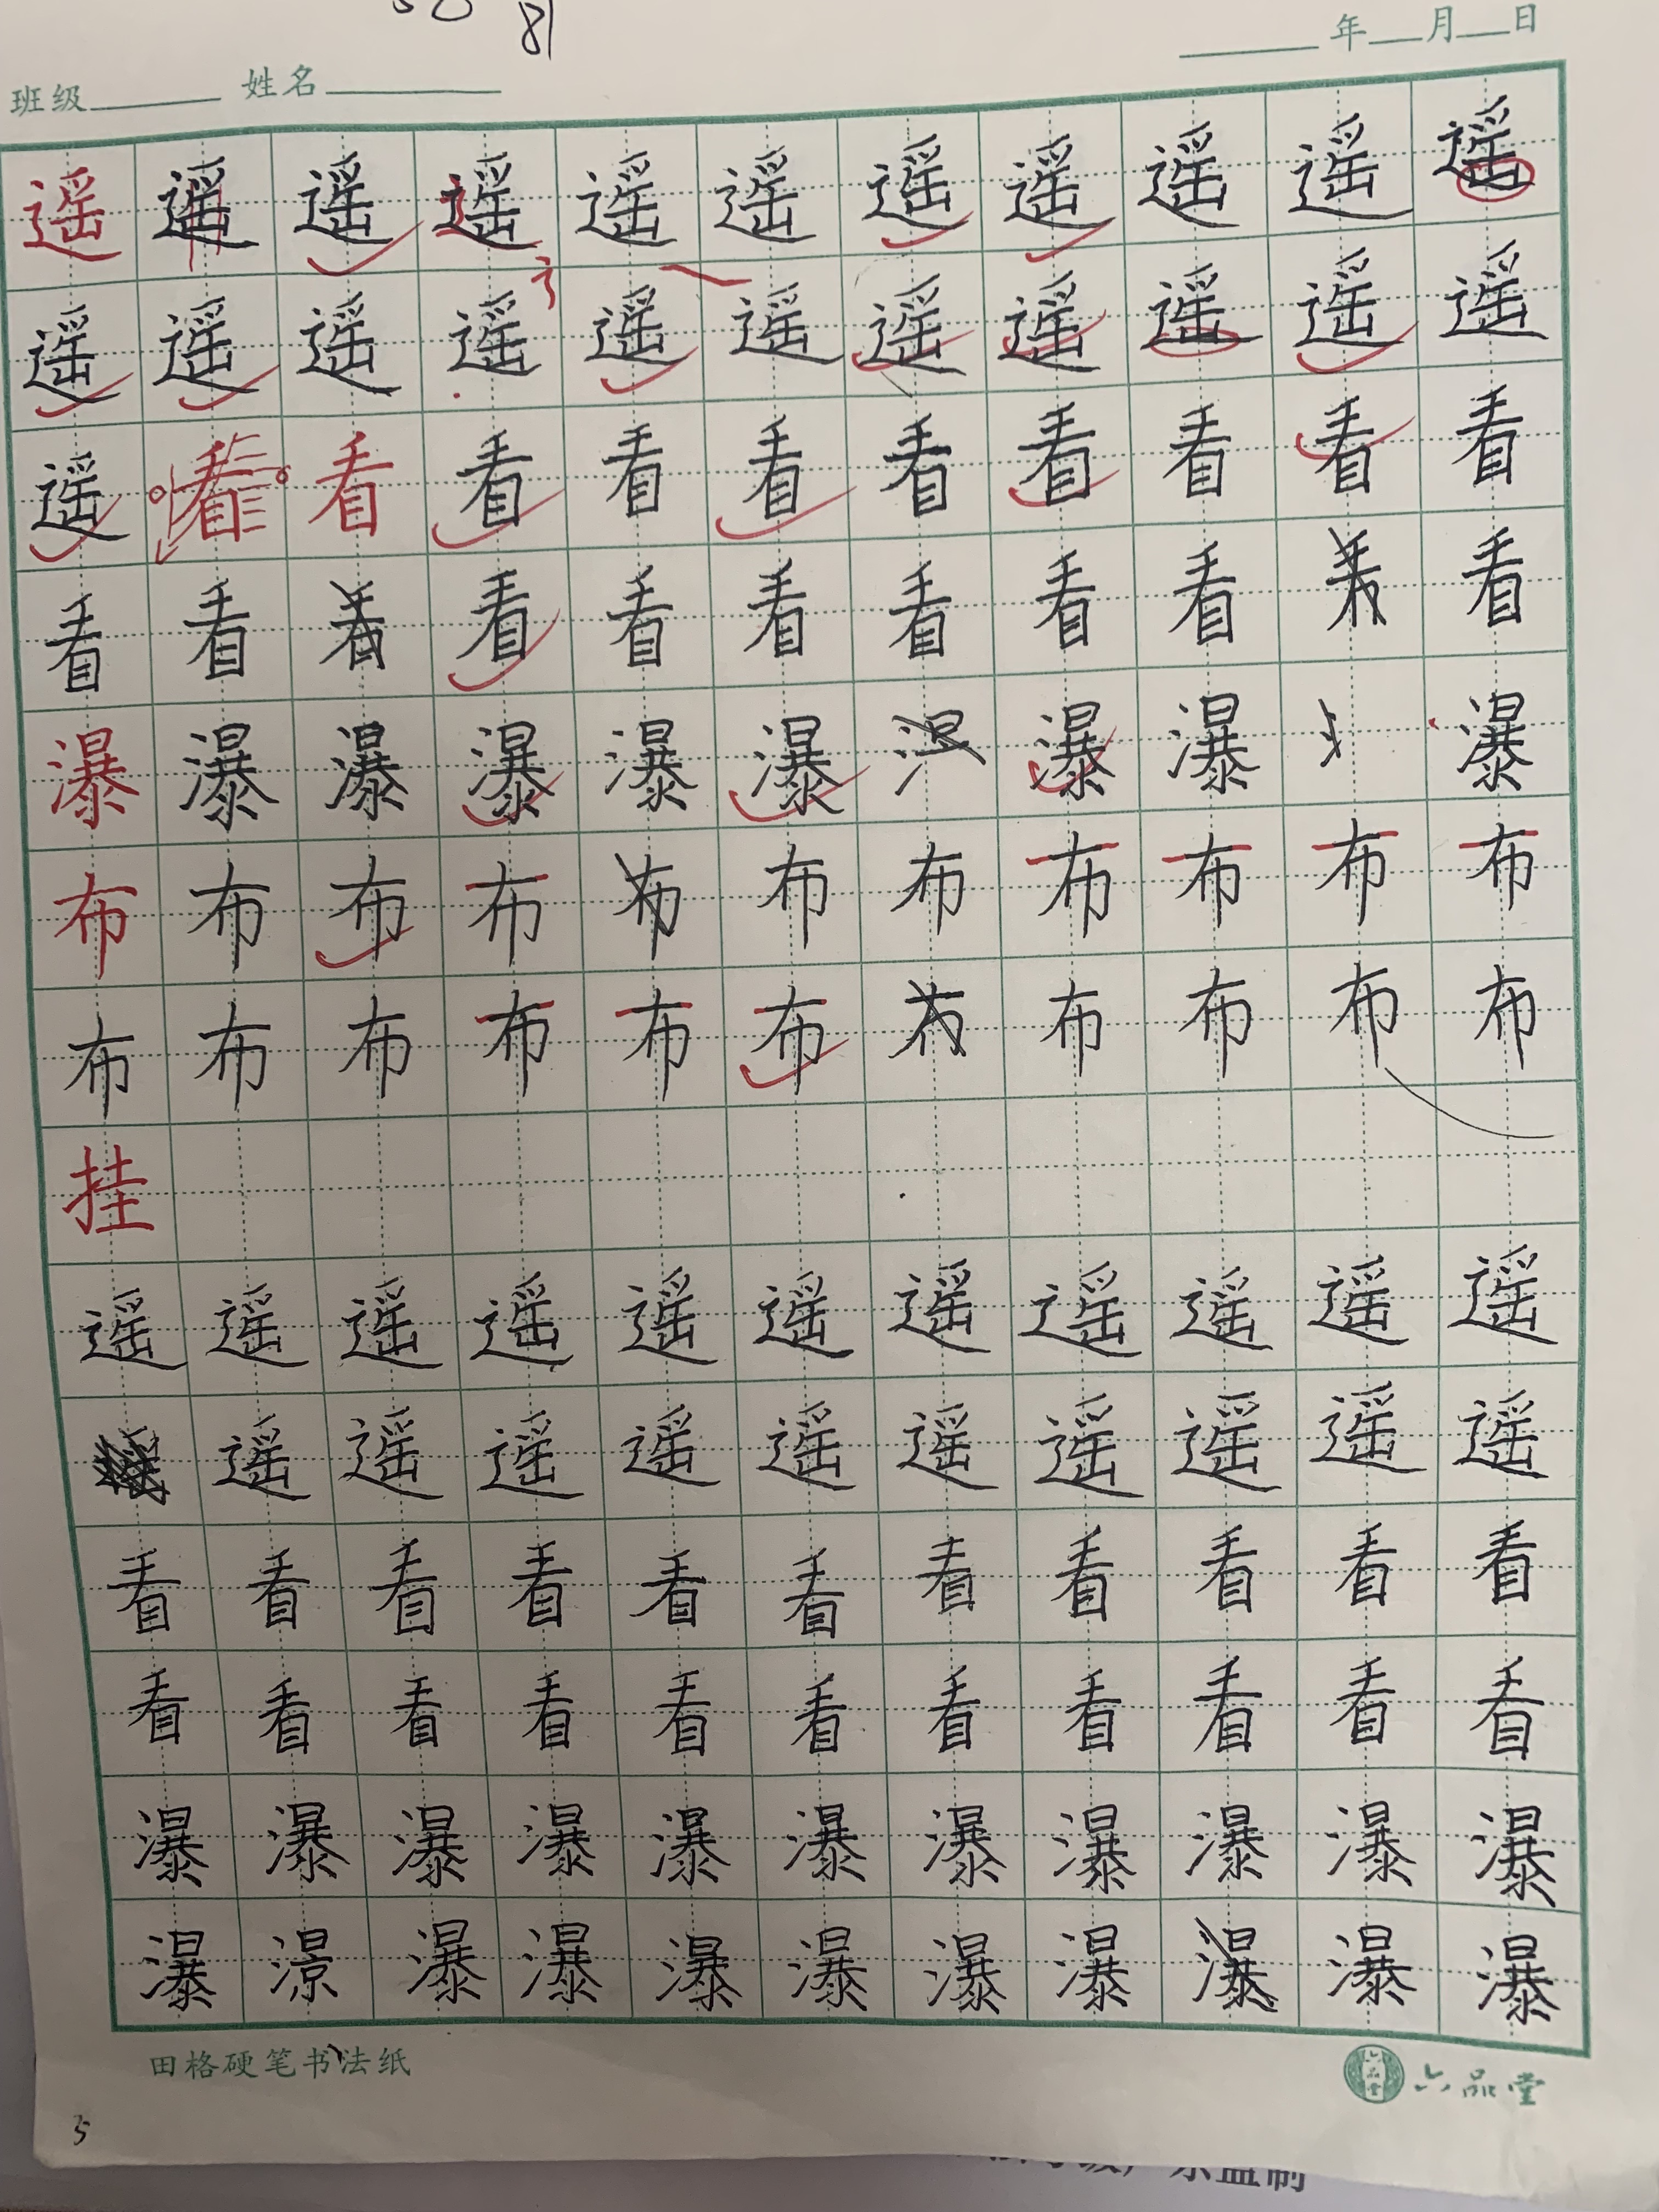 81
年 月 日
班级 姓名
遥遥遥遥遥遥遥遥遥遥遥
遥遥遥遥遥遥遥遥遥遥遥
遥看看看看看看看看看看
看看看看看看看看看看
瀑瀑瀑瀑瀑瀑瀑瀑瀑
布布布布布布布布布布布
布布布布布布布布布布
挂
遥遥遥遥遥遥遥遥遥遥遥
遥遥遥遥遥遥遥遥遥遥
看看看看看看看看看看看
看看看看看看看看看看看
瀑瀑瀑瀑瀑瀑瀑瀑瀑瀑瀑
瀑涼瀑瀑瀑瀑瀑瀑瀑瀑瀑
田格硬笔书法纸
六品堂
5